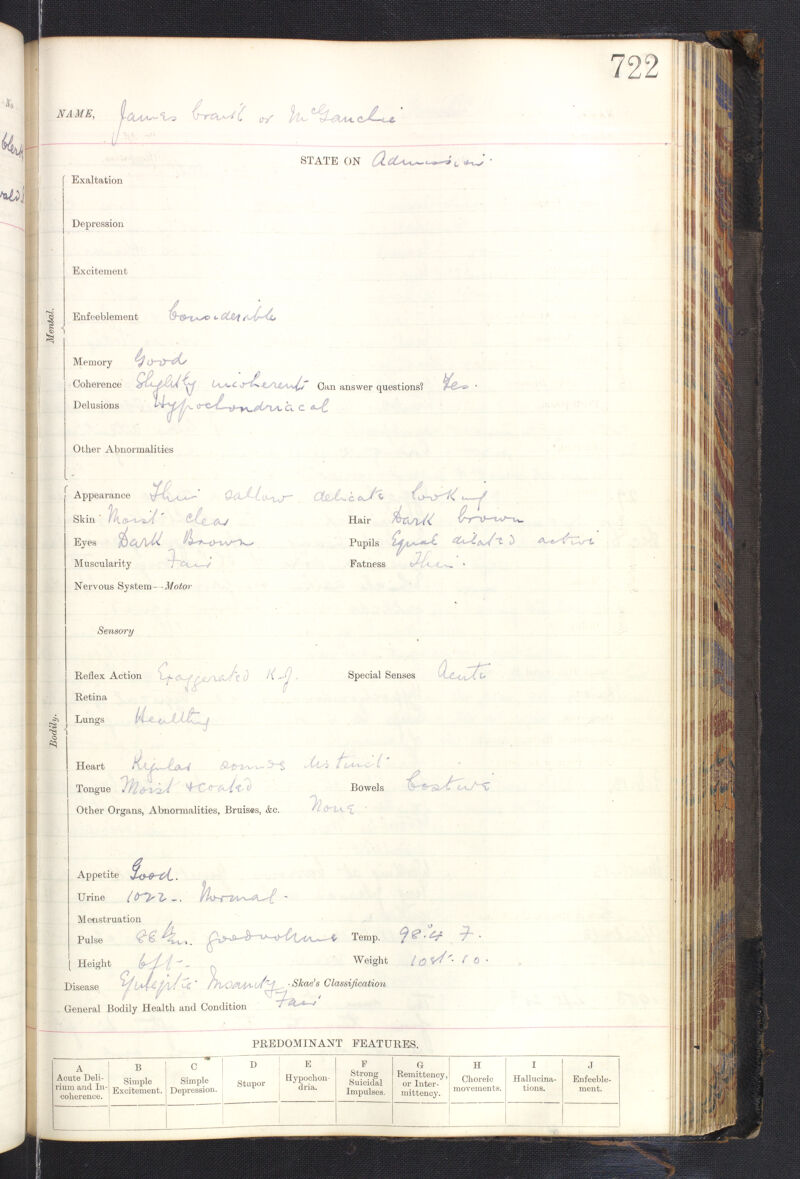 722
NAME, James or McGauchie
STATE ON Admission.
Mental.
Exaltation
Depression
Excitement
Enfeeblement Considerable
Memory Good
Coherence Slightly incoherent Can answer questions? Yes.
Delusions Hypochondriacal
Other Abnormalities
Bodily.
Appearance Thin sallow delicate looking
Skin Moist clear Hair Dark brown
Eyes Dark Brown Pupils Equal dilated active
Muscularity Fair Fatness Thin.
Nervous System--Motor
Sensory
Reflex Action Exaggerated K-J. Special Senses Acute
Retina
Lungs Healthy
Heart Regular sounds distinct
Tongue Moist & coated Bowels Costive
Other Organs, Abnormalities, Bruises, &c. None.
Appetite Good.
Urine 1022-. Normal.
Menstruation
Pulse 88 good volume Temp. 98°.4 F.
Height 6ft- Weight 10st. 10.
Disease Epileptic Insanity -Skae's Classification
General Bodily Health and Condition Fair
PREDOMINANT FEATURES.
A Acute Delirium and Incoherence.
B Simple Excitement.
C Simple Depression.
D Stupor
E Hypochondria.
F Strong Suicidal Impulses.
G Remittency, or Intermittency.
H Choreic movements.
I Hallucinations.
J Enfeeblement.